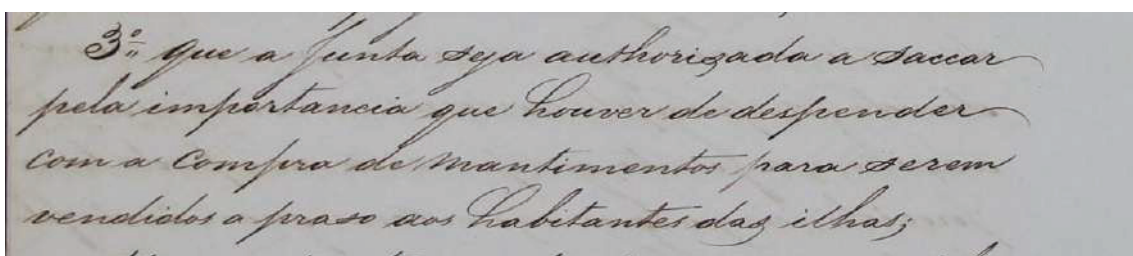 3º que a Junta seja authorizada a saccar
pela importancia que houver de despender
com a compra de mantimentos para serem
vendidos a praso aos habitantes das ilhas;